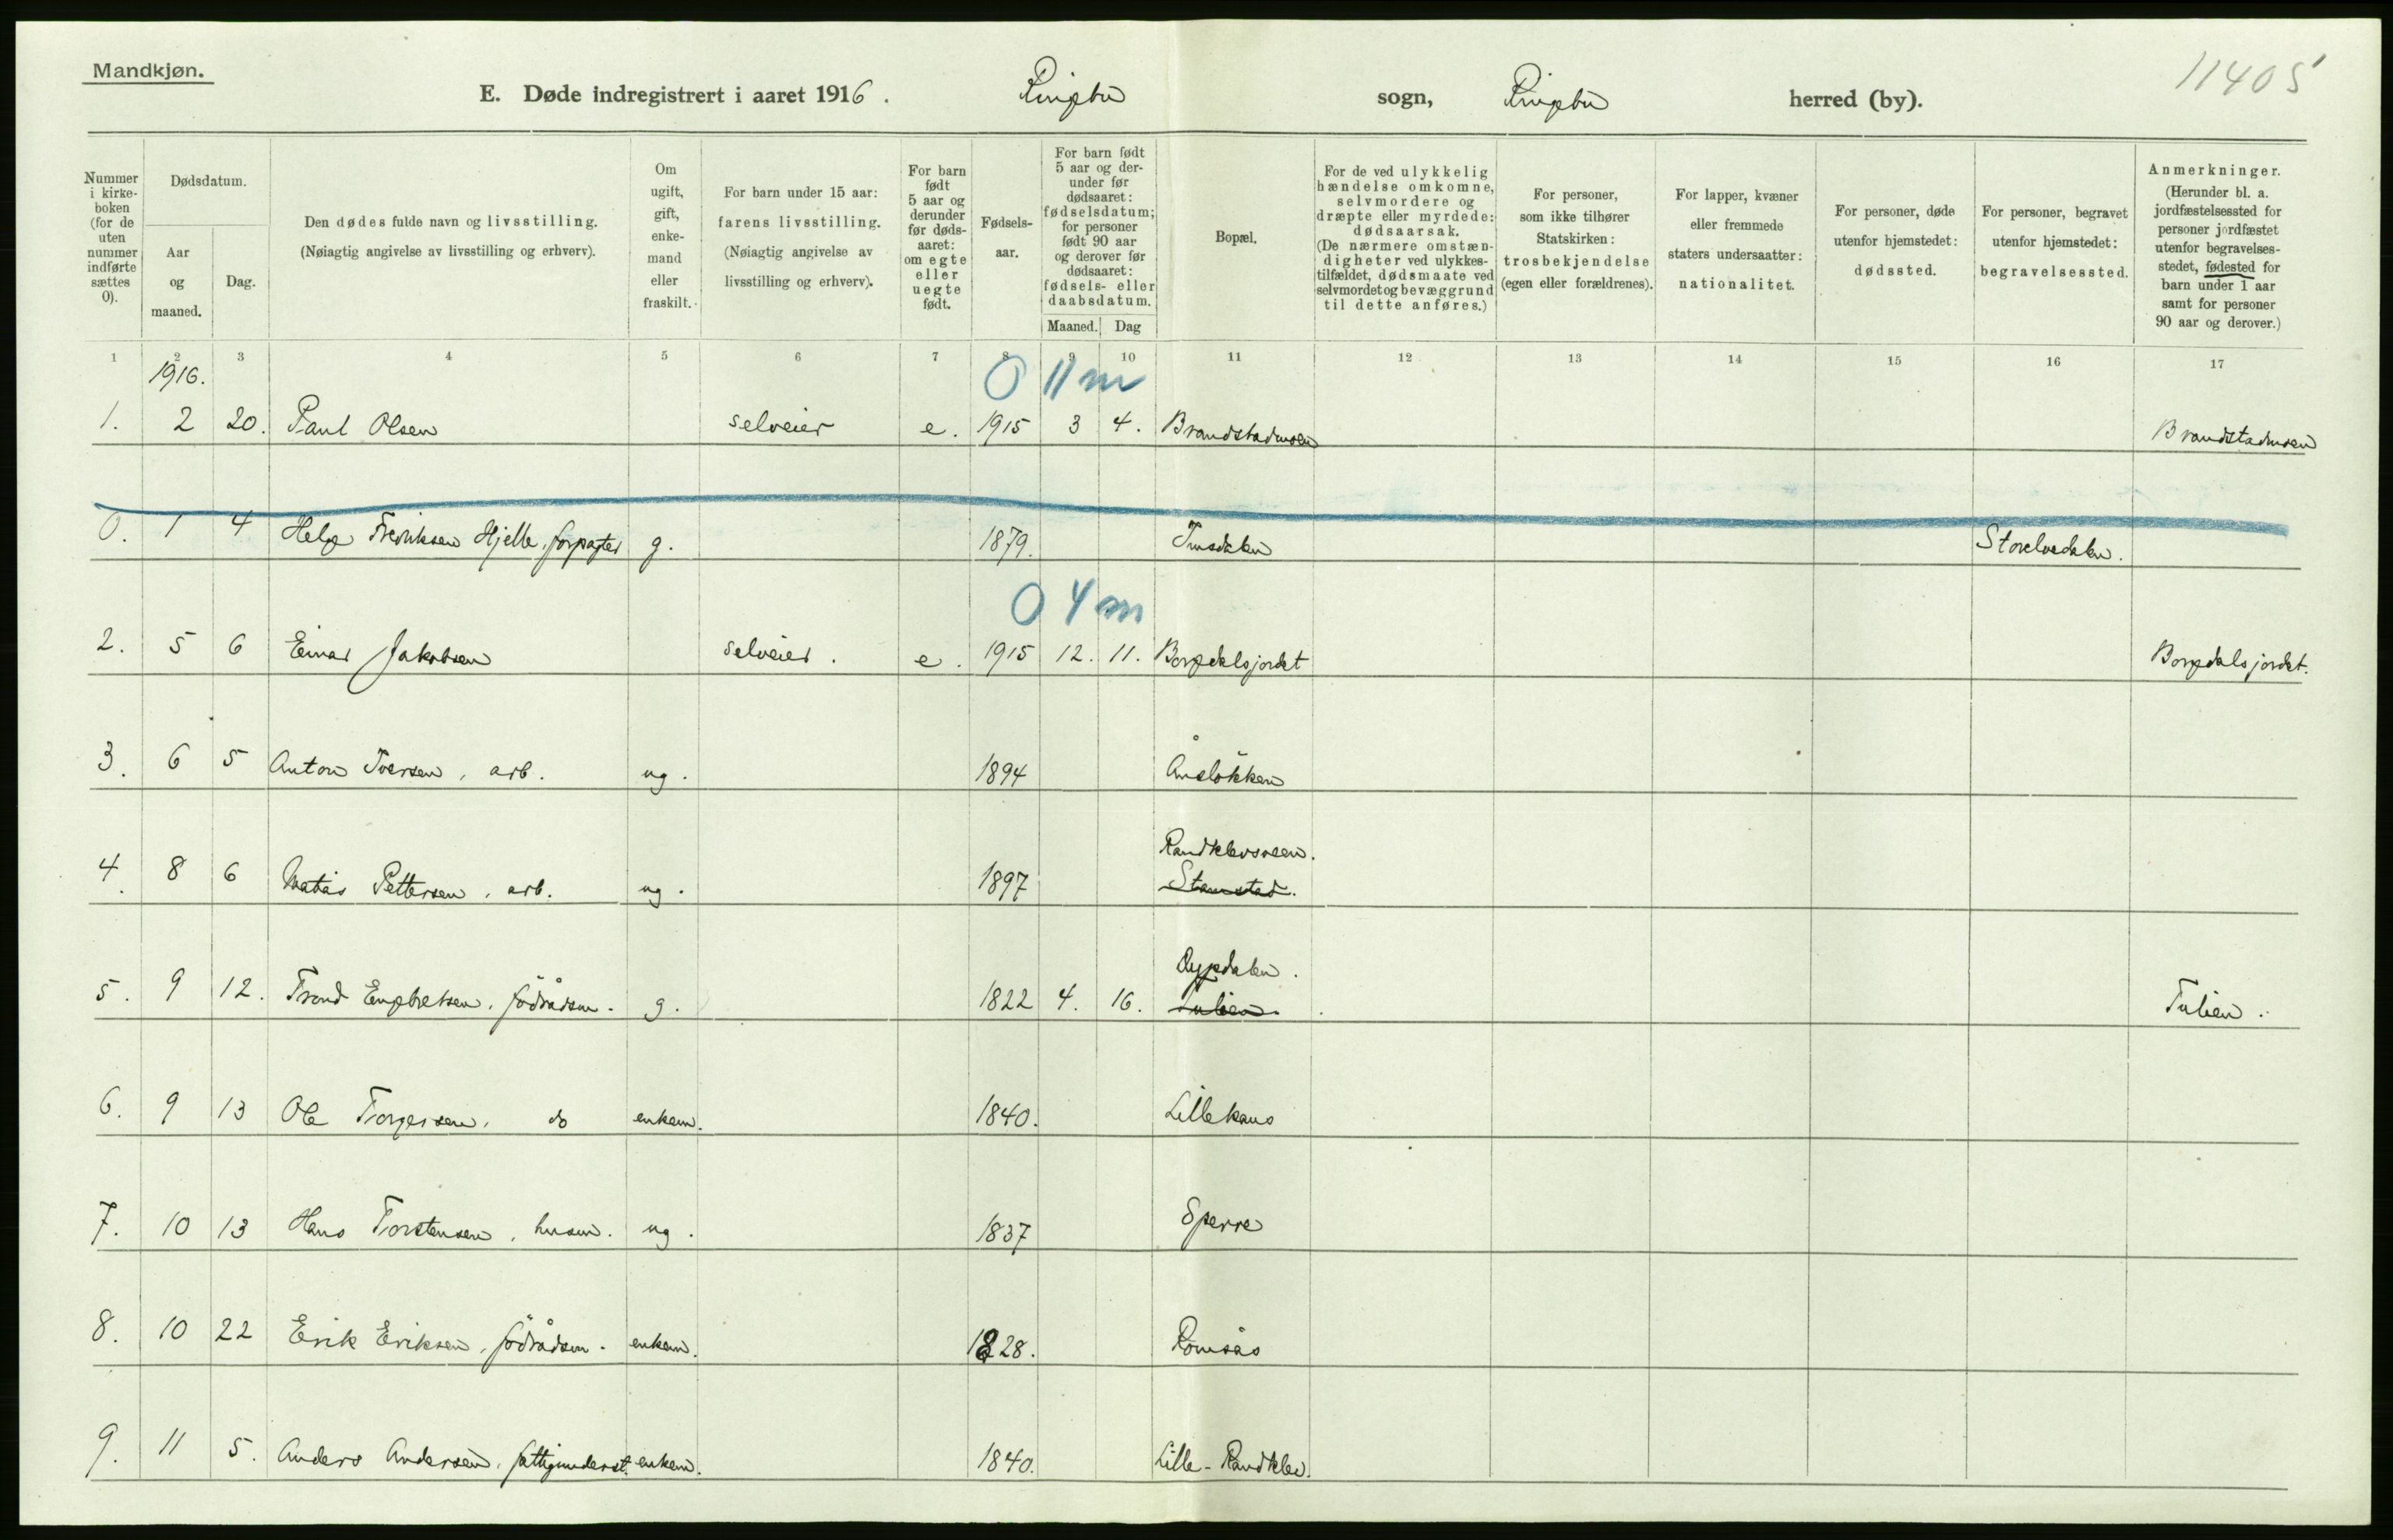 Mandkjøn.
11405
E. Døde indregistrert i aaret 1916. Ringebu sogn, Ringebu herred (by).
Nummer i kirke-boken (for de uten nummer indførte sættes 0).
Dødsdatum.
Aar og maaned.
Dag.
Den dødes fulde navn og livsstilling.
(Nøiagtig angivelse av livsstilling og erhverv).
Om ugift, gift, enke-mand eller fraskilt.
For barn under 15 aar: farens livsstilling.
(Nøiagtig angivelse av livsstilling og erhverv).
For barn født 5 aar og derunder før døds-aaret: om egte eller uegte født.
Fødsels-aar.
For barn født 5 aar og der-under før dødsaaret: fødselsdatum; for personer født 90 aar og derover før dødsaaret: fødsels- eller daabsdatum.
Maaned. Dag
Bopæl.
For de ved ulykkelig hændelse omkomne, selvmordere og dræpte eller myrdede: dødsaarsak.
(De nærmere omstæn-digheter ved ulykkes-tilfældet, dødsmaate ved selvmordet og bevæggrund til dette anføres.)
For personer, som ikke tilhører Statskirken: trosbekjendelse (egen eller forældrenes).
For lapper, kvæner eller fremmede staters undersaatter: nationalitet.
For personer, døde utenfor hjemstedet: dødssted.
For personer, begravet utenfor hjemstedet: begravelsessted.
Anmerkninger.
(Herunder bl. a. jordfæstelsessted for personer jordfæstet utenfor begravelses-stedet, fødested for barn under 1 aar samt for personer 90 aar og derover.)
1 2 3 4 5 6 7 8 9 10 11 12 13 14 15 16 17
1916.
0 11 m
1. 2 20. Paul Olsen selveier e. 1915 3 4. Brandstadmoen Brandstadmoen
0. 1 4 Helge Fredriksen Hjelle, forpagter g. 1879. Imsdalen Storelvedalen.
0 4 m
2. 5 6 Einar Jakobsen selveier. e. 1915 12. 11. Borgedalsjordet Borgedalsjordet.
3. 6 5 Anton Iversen, arb. ug. 1894 Ånsløkken
Randklevsveen.
4. 8 6 Matias Pettersen, arb. ug. 1897 Stamstad.
5. 9 12. Trond Engebretsen, fødrådsm. g. 1822 4. 16. Tulien. Tulien.
6. 9 13 Ole Torgersen, do enkem. 1840. Lillekans
7. 10 13 Hans Torstensen, husm. ug. 1837 Sperre
8. 10 22 Erik Eriksen, fødrådsm. enkem. 1828. Romsås
9. 11 5. Anders Andersen, fattigunderst. enkem. 1840. Lille-Randklev.